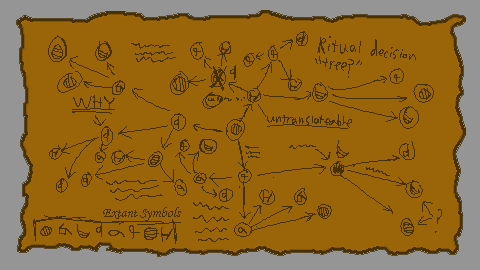 Ritual decision
"tree?"
WHY
untranslateable
Extant Symbols